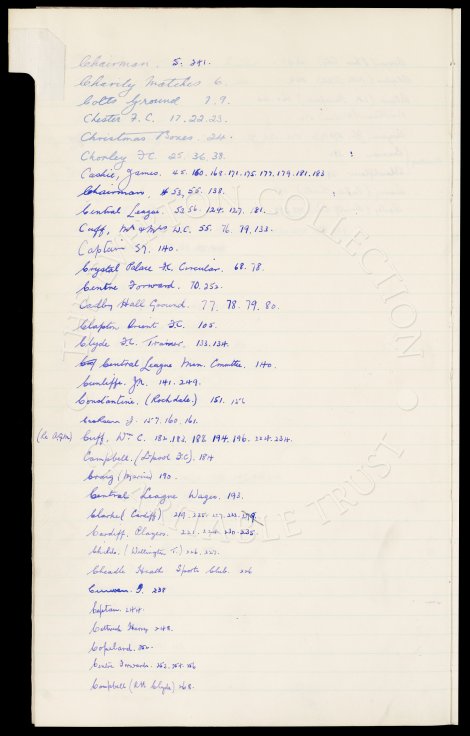 Chairman. 5. 241.
Charity Matches 6.
Colts Ground 7, 9.
Chester F.C. 17. 22. 23.
Christmas Boxes. 24.
Chorley F.C. 25. 36. 38.
Cassie, James. 45. 160. 169. 171. 175. 177. 179. 181. 183
Chairman, 53, 55. 138.
Central League. 53 56. 124. 127. 181.
Cuff, Mr & Mrs W.C. 55. 76. 79. 133.
Captain 57. 140.
Crystal Palace F.C. Circular. 68. 78.
Centre Forward. 70. 252.
Cadby Hall Ground. 77. 78. 79. 80.
Clapton Orient F.C. 105.
Clyde F.C. Trainer. 133. 134.
Central League Man. Committee. 140.
Cunliffe. J.N. 141. 249.
Constantine. (Rochdale.) 151. 152
J. 157. 160. 161.
(Re A.G.M.) Cuff, Wm C. 182. 183. 188. 194. 196. 224. 234.
Campbell. (L'pool F.C.) 184
Craig (Marine) 190.
Central League Wages. 193.
Clarke (Cardiff) 219. 225. 227. 232.
Cardiff. Players. 221. 224. 230. 235.
Childs. (Wellington T.) 226. 227.
Cheadle Heath Sports Club. 226
Curwen. J. 238
Captain. 244.
Catterick Harry 248.
Copeland. 250.
Centre Forwards. 252. 254. 256
Campbell (R.M. Clyde) 268.
THE COLLECTION
CHARITABLE TRUST